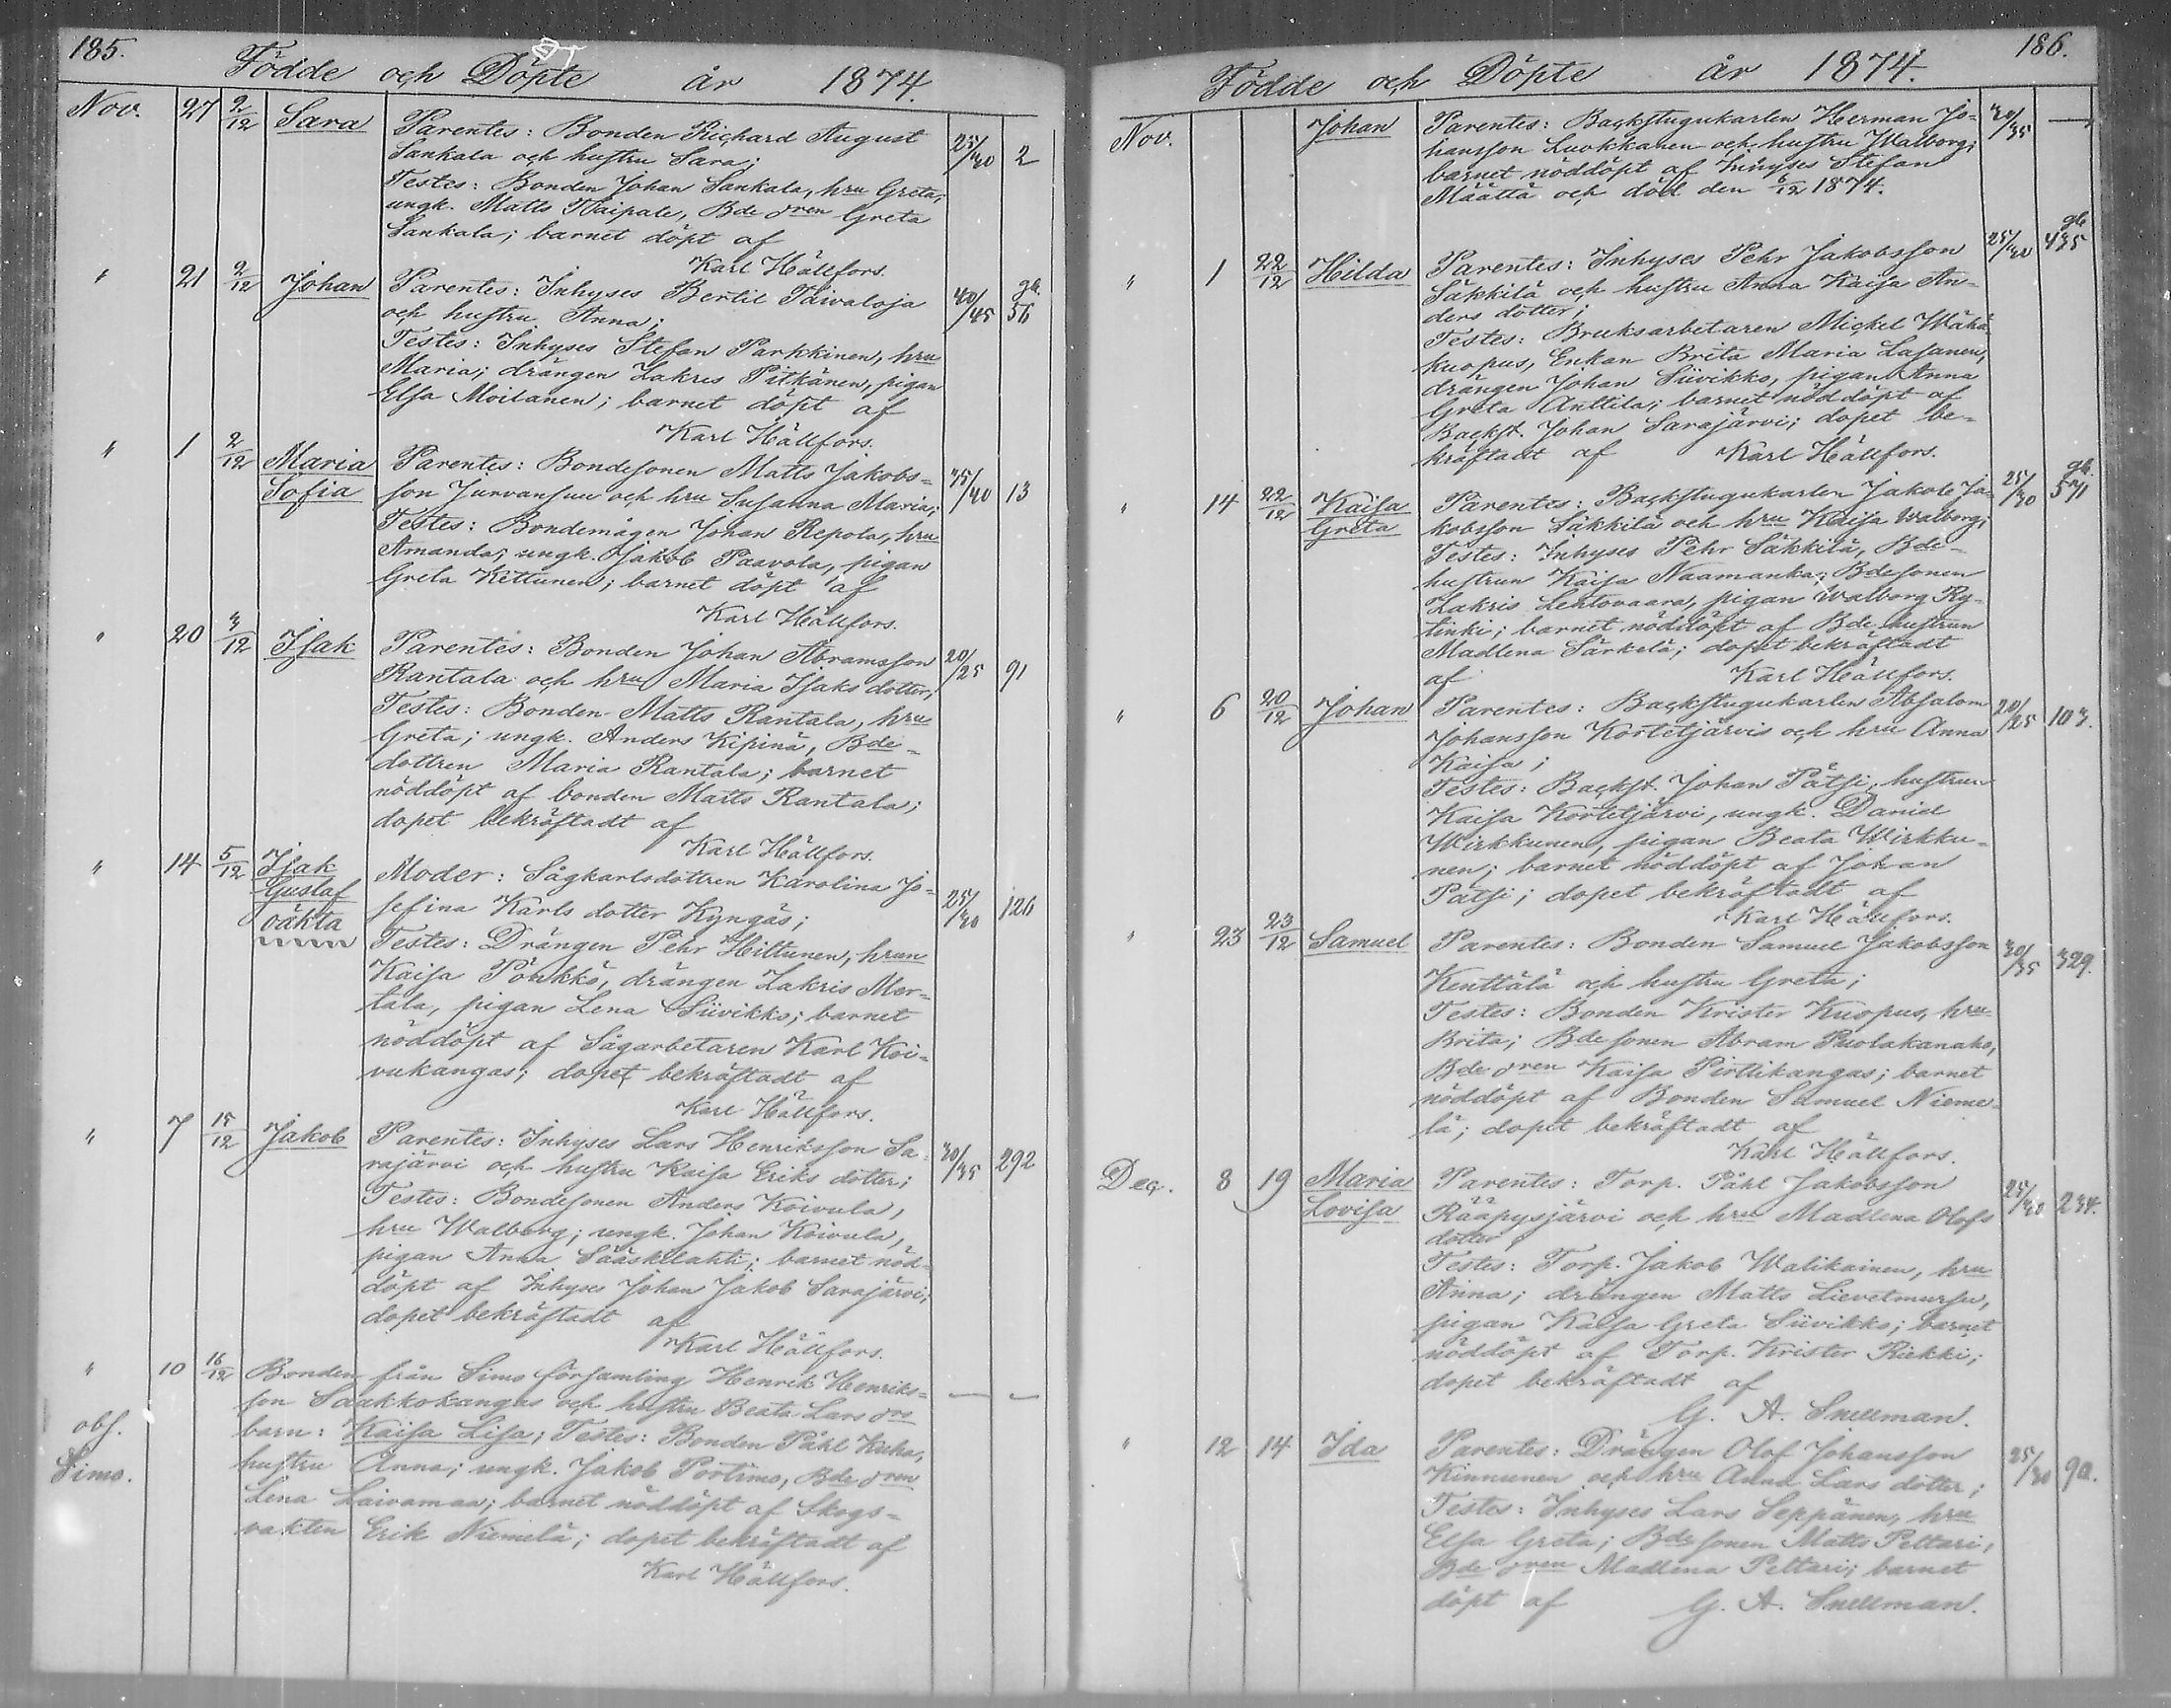 185.
Födde och Döpte år 1874.
Nov. 27 2/12 Sara Parentes: Bonden Richard August 25/30 2
Sankala och hustru Sara;
Testes: Bonden Johan Sankala, hru Greta,
ungk. Matts Taipale, Bde dren Greta
Sankala; barnet döpt af
Karl Hällfors.
" 21 2/12 Johan Parentes: Inhyses Bertil Taivaloja 40/45 gh. 56
och hustru Anna;
Testes: Inhyses Stefan Parkkinen, hru
Maria; drängen Zakris Pitkänen, pigan
Elsa Moilanen; barnet döpt af
Karl Hällfors.
" 1 2/12 Maria Parentes: Bondesonen Matts Jakobs= 35/40 13
Sofia son Jurvansuu och hru Susanna Maria;
Testes: Bondemågen Johan Repola, hru
Amanda; ungk. Jakob Paavola, pigan
Greta Kettunen; barnet döpt af
Karl Hällfors.
" 20 3/12 Isak Parentes: Bonden Johan Abramsson 20/25 91
Rantala och hru Maria Isaks dotter,
Testes: Bonden Matts Rantala, hru
Greta; ungk. Anders Kipinä, Bde=
dottren Maria Rantala; barnet
nöddöpt af bonden Matts Rantala;
dopet bekräftadt af
Karl Hällfors.
" 14 5/12 Isak Moder: Sågkarlsdottren Karolina Jo= 25/30 126
Gustaf sefina Karls dotter Kyngäs;
oäkta Testes: Drängen Pehr Hiltunen, hrun
Kaisa Pönkkö, drängen Zakris Mer=
tala, pigan Lena Siivikko; barnet
nöddöpt af Sågarbetaren Karl Koi=
vukangas; dopet bekräftadt af
Karl Hällfors.
" 7 15/12 Jakob Parentes: Inhyses Lars Henriksson Sa= 30/35 292
rajärvi och hustru Kaisa Eriks dotter;
Testes: Bondesonen Anders Koivula,
hru Walborg; ungk. Johan Koivula,
pigan Anna Sääskilahti; barnet nöd=
döpt af Inhyses Johan Jakob Sarajärvi;
dopet bekräftadt af
Karl Hällfors.
" 10 16/12 Bonden från Simo församling Henrik Henriks= — —
son Saakkokangas och hustru Beata Lars drs
obs. barn: Kaisa Lisa; Testes: Bonden Påhl Kuha,
Simo. hustru Anna; ungk. Jakob Portimo, Bde dren
Lena Laivamaa; barnet nöddöpt af Skogs=
vakten Erik Niemelä; dopet bekräftadt af
Karl Hällfors.
186.
Födde och Döpte år 1874.
Nov. Johan Parentes: Backstugukarlen Herman Jo= 30/35 —
hansson Luokkanen och hustru Walborg;
barnet nöddöpt af Inhyses Stefan
Määttä och död den 6/12 1874.
" 1 22/12 Hilda Parentes: Inhyses Pehr Jakobsson 25/30 gh 435
Säkkilä och hustru Anna Kaisa An=
ders dotter;
Testes: Bruksarbetaren Mickel Wähä=
kuopus, Enkan Brita Maria Lasanen,
drängen Johan Siivikko, pigan Anna
Greta Anttila; barnet nöddöpt af
Backst. Johan Sarajärvi; dopet be=
kräftadt af Karl Hällfors.
" 14 22/12 Kaisa Parentes: Backstugukarlen Jakob Ja= 25/30 gh. 571
Greta kobsson Säkkilä och hru Kaisa Walborg;
Testes: Inhyses Pehr Säkkilä, Bde-
hustrun Kaisa Naamanka; Bdesonen
Zakris Lehtovaara, pigan Walborg Ry=
tinki; barnet nöddöpt af Bde hustrun
Madlena Särkelä; dopet bekräftadt
af Karl Hällfors.
" 6 20/12 Johan Parentes: Backstugukarlen Absalom 20/25 103.
Johansson Kortetjärvis och hru Anna
Kaisa;
Testes: Backst. Johan Pätsi, hustrun
Kaisa Kortetjärvi, ungk. Daniel
Wirkkunen, pigan Beata Wirkku=
nen; barnet nöddöpt af Johan
Pätsi; dopet bekräftadt af
Karl Hällfors.
" 23 23/12 Samuel Parentes: Bonden Samuel Jakobsson 30/35 329.
Kenttälä och hustru Greta;
Testes: Bonden Krister Kuopus, hru
Brita; Bde sonen Abram Puolakanaho,
Bde dren Kaisa Pirttikangas; barnet
nöddöpt af Bonden Samuel Nieme=
lä; dopet bekräftadt af
Karl Hällfors.
Dec. 8 19 Maria Parentes: Torp. Påhl Jakobsson 25/30 234.
Lovisa Rääpysjärvi och hru Madlena Olofs
dotter;
Testes: Torp. Jakob Walikainen, hru
Anna; drängen Matts Lievetmursu,
pigan Kaisa Greta Siivikko; barnet
nöddöpt af Torp. Krister Riekki;
dopet bekräftadt af
G. A. Snellman.
" 12 14 Ida Parentes: Drängen Olof Johansson 25/30 90.
Kinnunen och hru Anna Lars dotter;
Testes: Inhyses Lars Seppänen, hru
Elsa Greta; Bde sonen Matts Peltari,
Bde dren Madlena Peltari; barnet
döpt af G. A. Snellman.